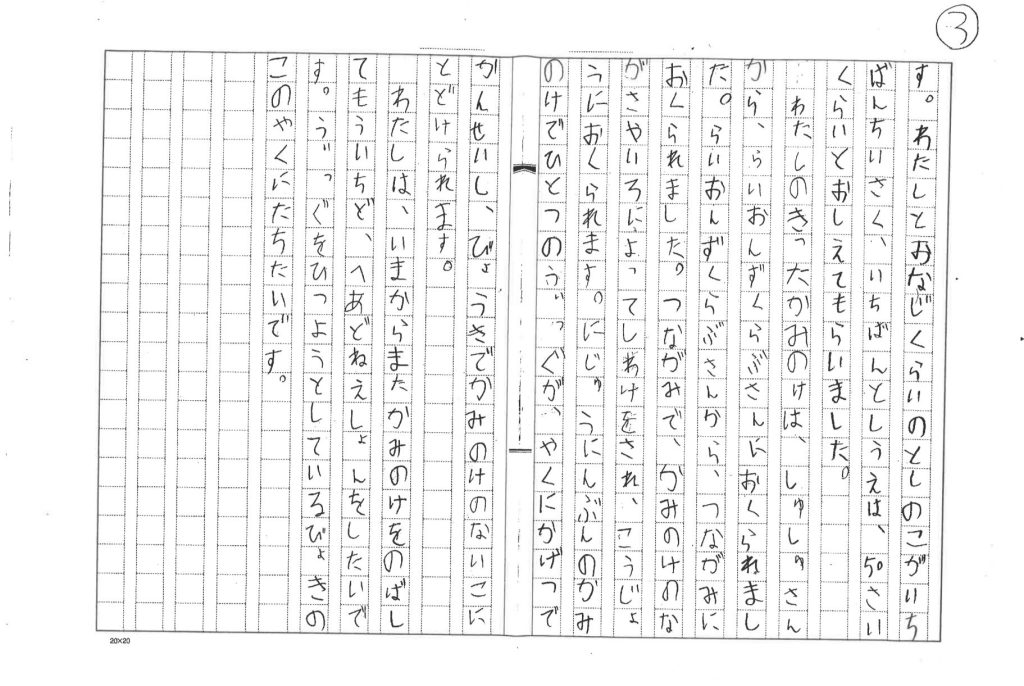 ③
す。わたしとおなじくらいのとしのこがいち
ばんちいさく、いちばんとしうえは、50さい
くらいとおしえてもらいました。
わたしのきったかみのけは、しゅじゅさん
から、らいおんずくらぶさんにおくられまし
た。らいおんずくらぶさんから、つながみに
おくられました。つながみで、かみのけのな
がさやいろによってしわけをされ、こうじょ
うにおくられます。にじゅうにんぶんのかみ
のけでひとつのうぃっぐが、やくにかげつで
かんせいし、びょうきでかみのけのないこに
とどけられます。
わたしは、いまからまたかみのけをのばし
てもういちど、へあどねえしょんをしたいで
す。うぃっぐをひつようとしているびょきの
このやくにたちたいです。
20×20